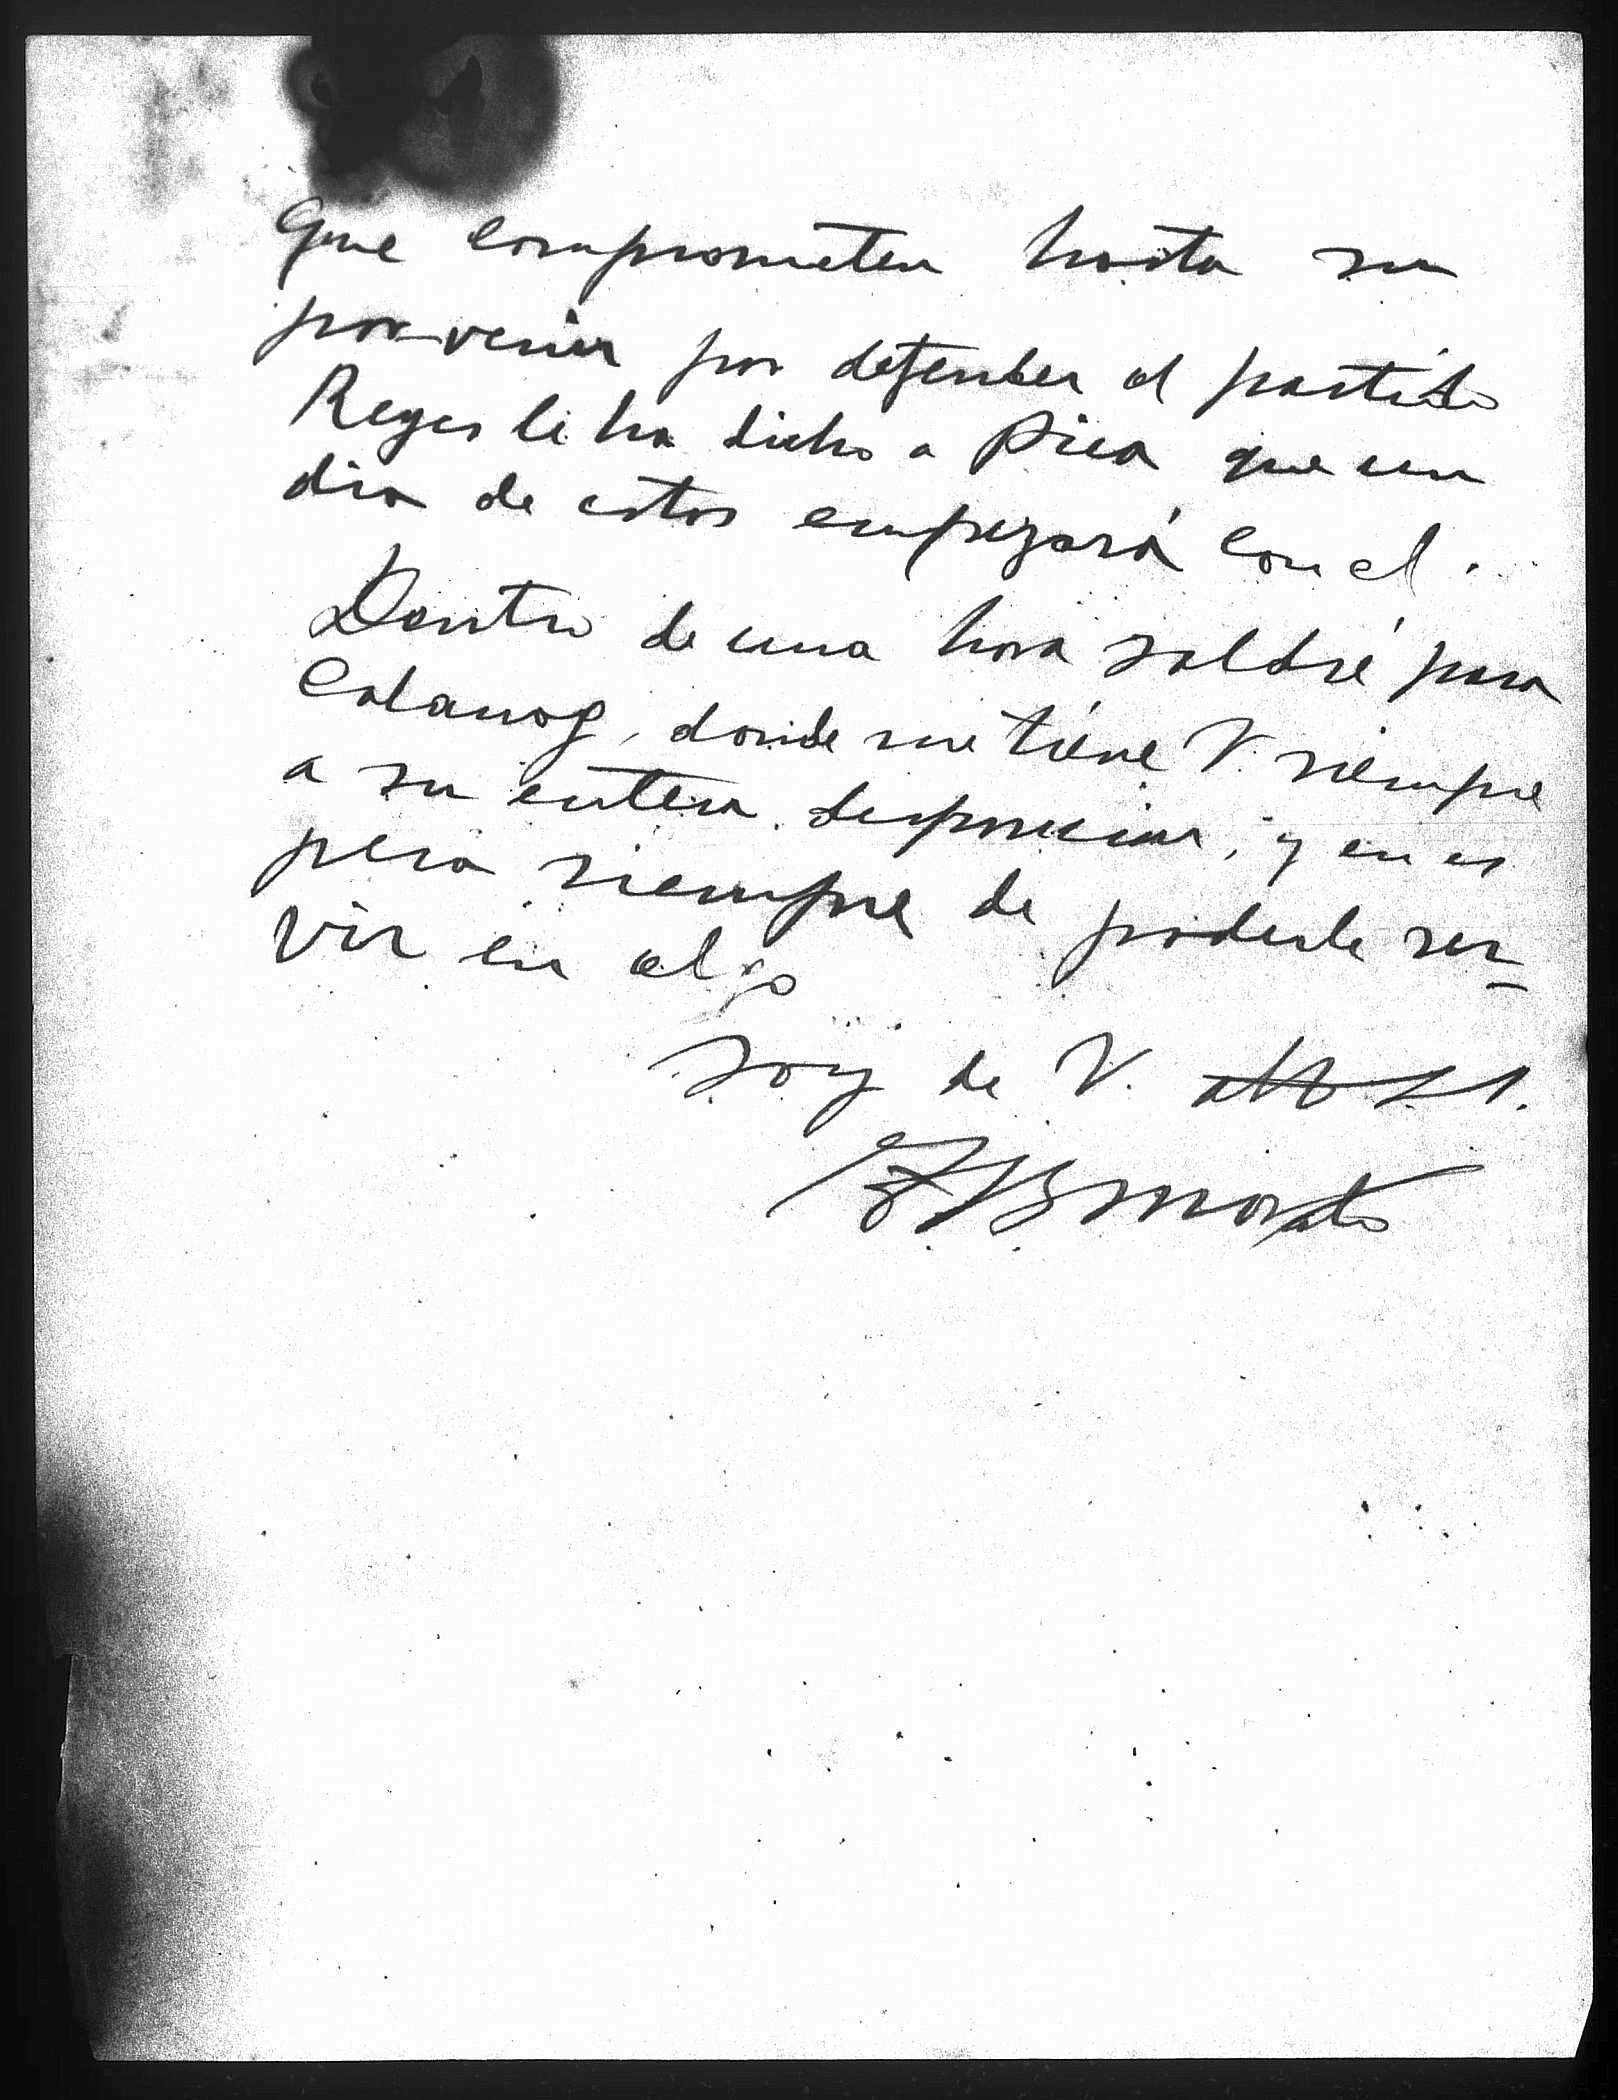 que comprometen hasta su
porvenir por defender el partido
Reyes le ha dicho a Pica que un
dia de estos empezará con el.
Dentro de una hora saldré para
Calauag, donde me tiene V. siempre
a su entera disposicion, y en es
pera siempre de poderle ser-
vir en algo
Soy de V.